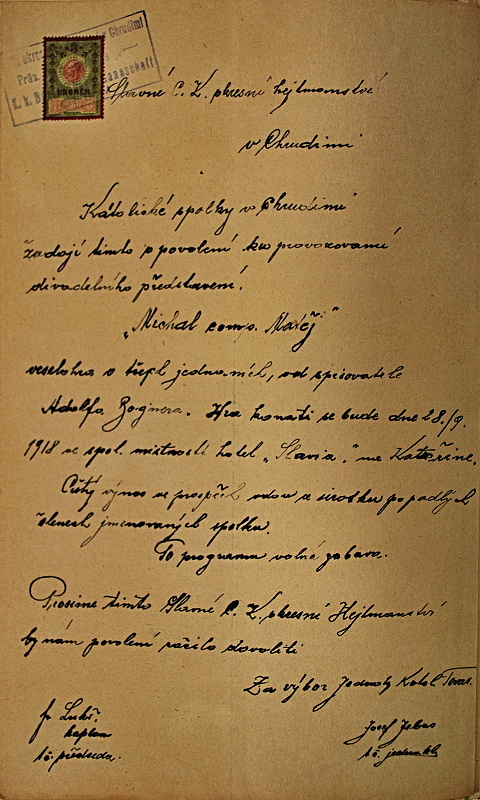 Chrudimi
K. k. B
KRONEN
Slavné C. K. okresní hejtmanství
v Chrudimi
Katolické spolky v Chrudimi
žádají tímto o povolení ku provozování
divadelního představení.
„Michal comp. Matěj"
veselohra o třech jednáních, od spisovatele
Adolfa Bognera. Hra konati se bude dne 28./9.
1918 ve spol. místnosti hotel „Slavia." na Kateřině.
Čistý výnos ve prospěch vdov a sirotků po padlých
členech jmenovaných spolků.
Po programu volná zábava.
Prosíme tímto Slavné C. K. okresní Hejtmanství
by nám povolení ráčilo dovoliti
Za výbor Jednoty Katol. Tovar.
fr Lukš.
kaplan
t. č. předseda.
Josef
t. č. jednatel